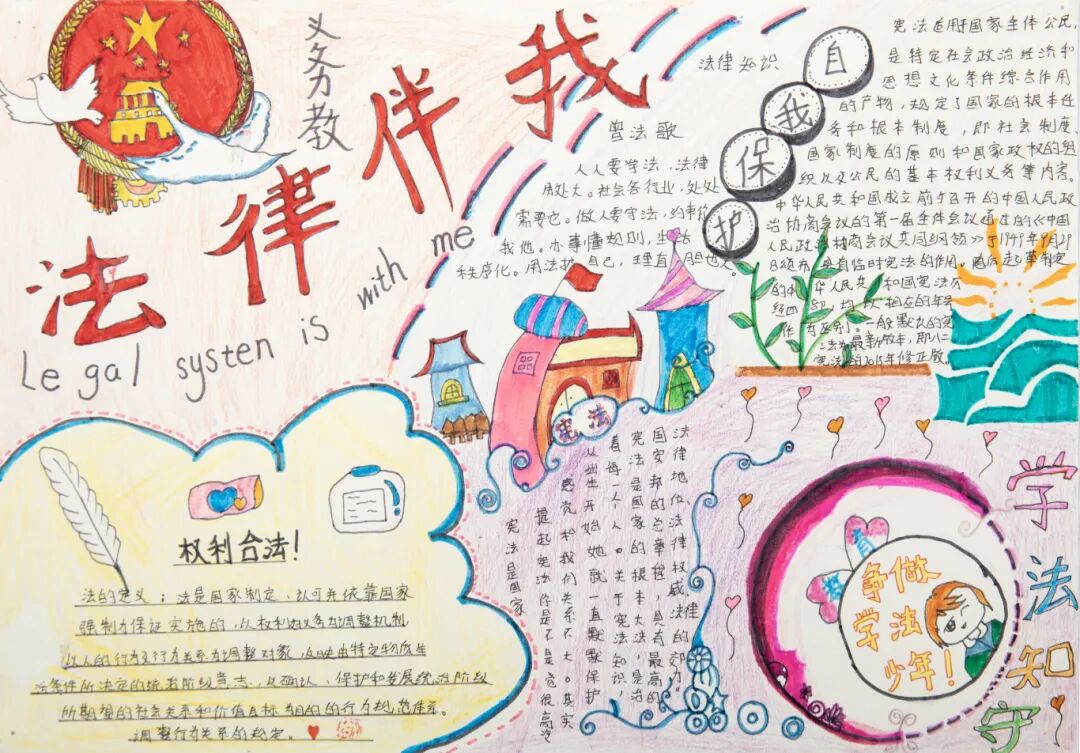 义务教
法律伴我
Legal systen is with me
法律知识
自我保护
曾法歌
人人要学法,法律
用处大。社会各行业,处处
需要也。做人要守法,约束你
我他。办事懂规则,生活
秩序化。用法护自己,理直
宪法适用于国家全体公民,
是特定社会政治经济和
思想文化条件综合作用
的产物,规定了国家的根本任
务和根本制度,即社会制度、
国家制度的原则和国家政权的组
织以及公民的基本权利义务等内容。
中华人民共和国成立前夕召开的中国人民政
治协商会议的第一届全体会议通过的《中国
人民政治协商会议共同纲领》于1949年9月29
日颁布,具有临时宪法的作用。随后起草制定
的中华人民共和国宪法
为最新版本,即八二
宪法的2018年修正版
宪法
法律地位、法律权威、法律的效力。
国安邦的总章程,具有最高的
宪法是国家的根本大法,是治
着每一个人。关于宪法知识,
从出生开始她就一直默默保护
感觉和我们关系不大。其实
提起宪法你是不是觉很高冷
宪法是国家
权利合法!
法的定义:法是国家制定、认可并依靠国家
强制力保证实施的,以权利义务为调整机制
以人的行为及行为关系为调整对象,反映由特定物质生
活条件所决定的统治阶级意志,以确认、保护和发展统治阶级
所期望的社会关系和价值目标为目的的行为规范体系。
调整行为关系的规定。
争做
学法
少年!
学法知守